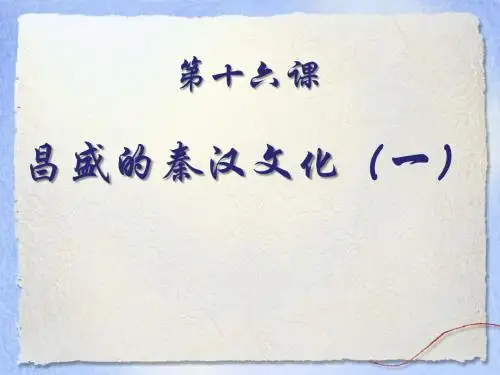 第十六课
昌盛的秦汉文化（一）